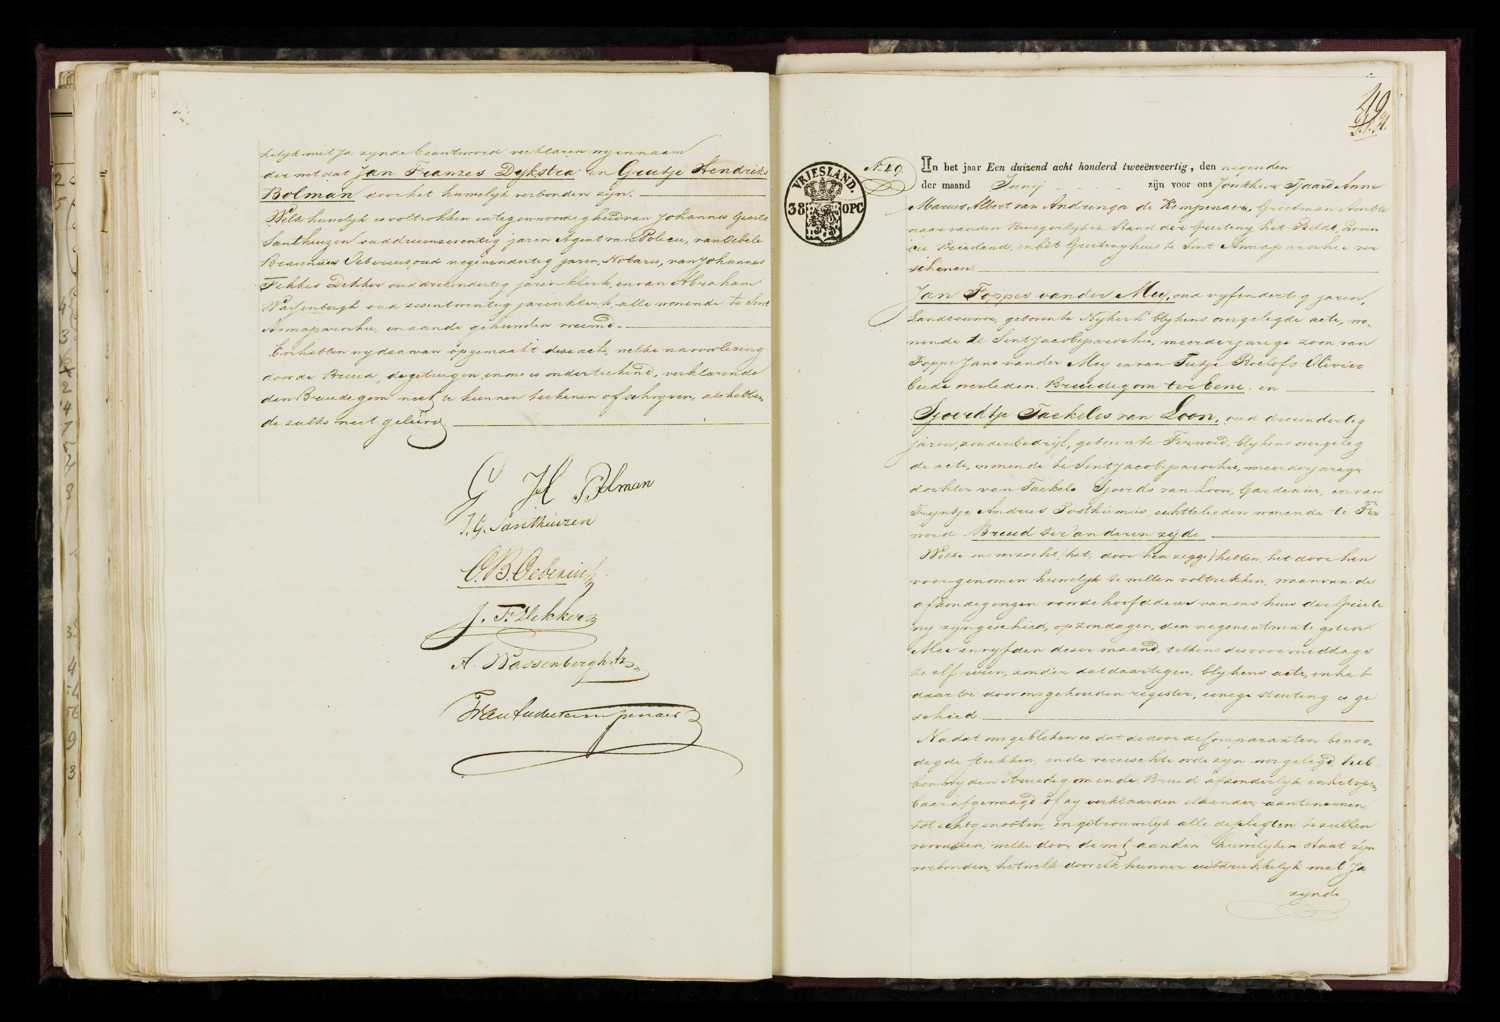 delyk met Ja zynde beantwoord verklaren wy in naam
der wet dat Jan Franzes Dykstra en Geertje Hendriks
Bolman door het huwelyk verbonden zyn.
Welk huwelyk is voltrokken in tegenwoordigheid van Johannes Geerts
Santhuizen oud drieenzeventig jaren Agent van Policie, van Oebele
oud negenendertig jaren, Notaris, van Johannes
Fekkes Dekker oud drieendertig jaren klerk, en van Abraham
Wassenbergh oud zesentwintig jaren klerk, alle wonende te Sint
Annaparochie, en aande gehuwden vreemd.
En hebben wy deze van opgemaakt deze acte, welke na voorlezing
door de Bruid, de getuigen, en ons is onderteekend, verklarende
den Bruidegom niet te kunnen teekenen of schryven, als hebben
de zulks niet geleerd
G H Bolman
J. G. Santhuizen
O. B. Oebexius
J. F. Dekker
A. Wassenbergh Az
49
VRIESLAND.
38 OPC
No. 49
In het jaar Een duizend acht honderd tweeënveertig, den negenden
der maand Junij zijn voor ons Jonkheer Tjaard Anne
Marius Albert van Andringa de Kempenaer, Grietman Ambte
naar van den Burgerlyken Stand der Grieteny het Bildt, Provin
cie Vriesland, in het Grietenyhuis te Sint Annaparochie ver
schenen
Jan Foppes van der Mey, oud vyfendertig jaren,
Landbouwer, geboren te Nykerk blykens overgelegde acte, wo-
nende te Sint Jacobiparochie, meerderjarige zoon van
Foppe Jans van der Mey en van Tietje Roelofs Olivier
beide overleden. Bruidegom ter eene en
Sjoerdtje Taekeles van Loon, oud drieendertig
jaren, zonder bedryf, geboren te Ferwerd, blykens overgeleg
de acte, wonende te Sint Jacobiparochie, meerderjarige
dochter van Taekele Sjoerds van Loon, Gardenier, en van
Tryntje Andries Posthumus, echtelieden wonende te Fer
werd Bruid ter anderen zyde
Welke ons verzocht (het, door hen zegge) hebben, het door hen
voorgenomen huwelyk te willen voltrekken, waarvan de
afkondigingen voor de hoofddeur van ons huis der Griete
ny zyn geschied, op zondagen, den negenentwintigsten
Mei en vyfden dezer maand, telkens des voormiddags
te elf uren, zonder dat daartegen, blykens acte, in het
daartoe door ons gehouden register, eenige stuiting is ge
schied
Nadat ons gebleken is dat de door de Comparanten benoo-
digde stukken, in de vereischte orde zyn overgelegd heb
ben wy den Bruidegom en de Bruid afzonderlyk en in het open
baar afgevraagd of zy verklaarden elkander aantenemen
tot echtgenooten, en getrouwelyk alle de pligten te zullen
vervullen, welke door de wet aan den huwelyken staat zyn
verbonden, hetwelk door elk hunner uitdrukkelyk met Ja
zynde